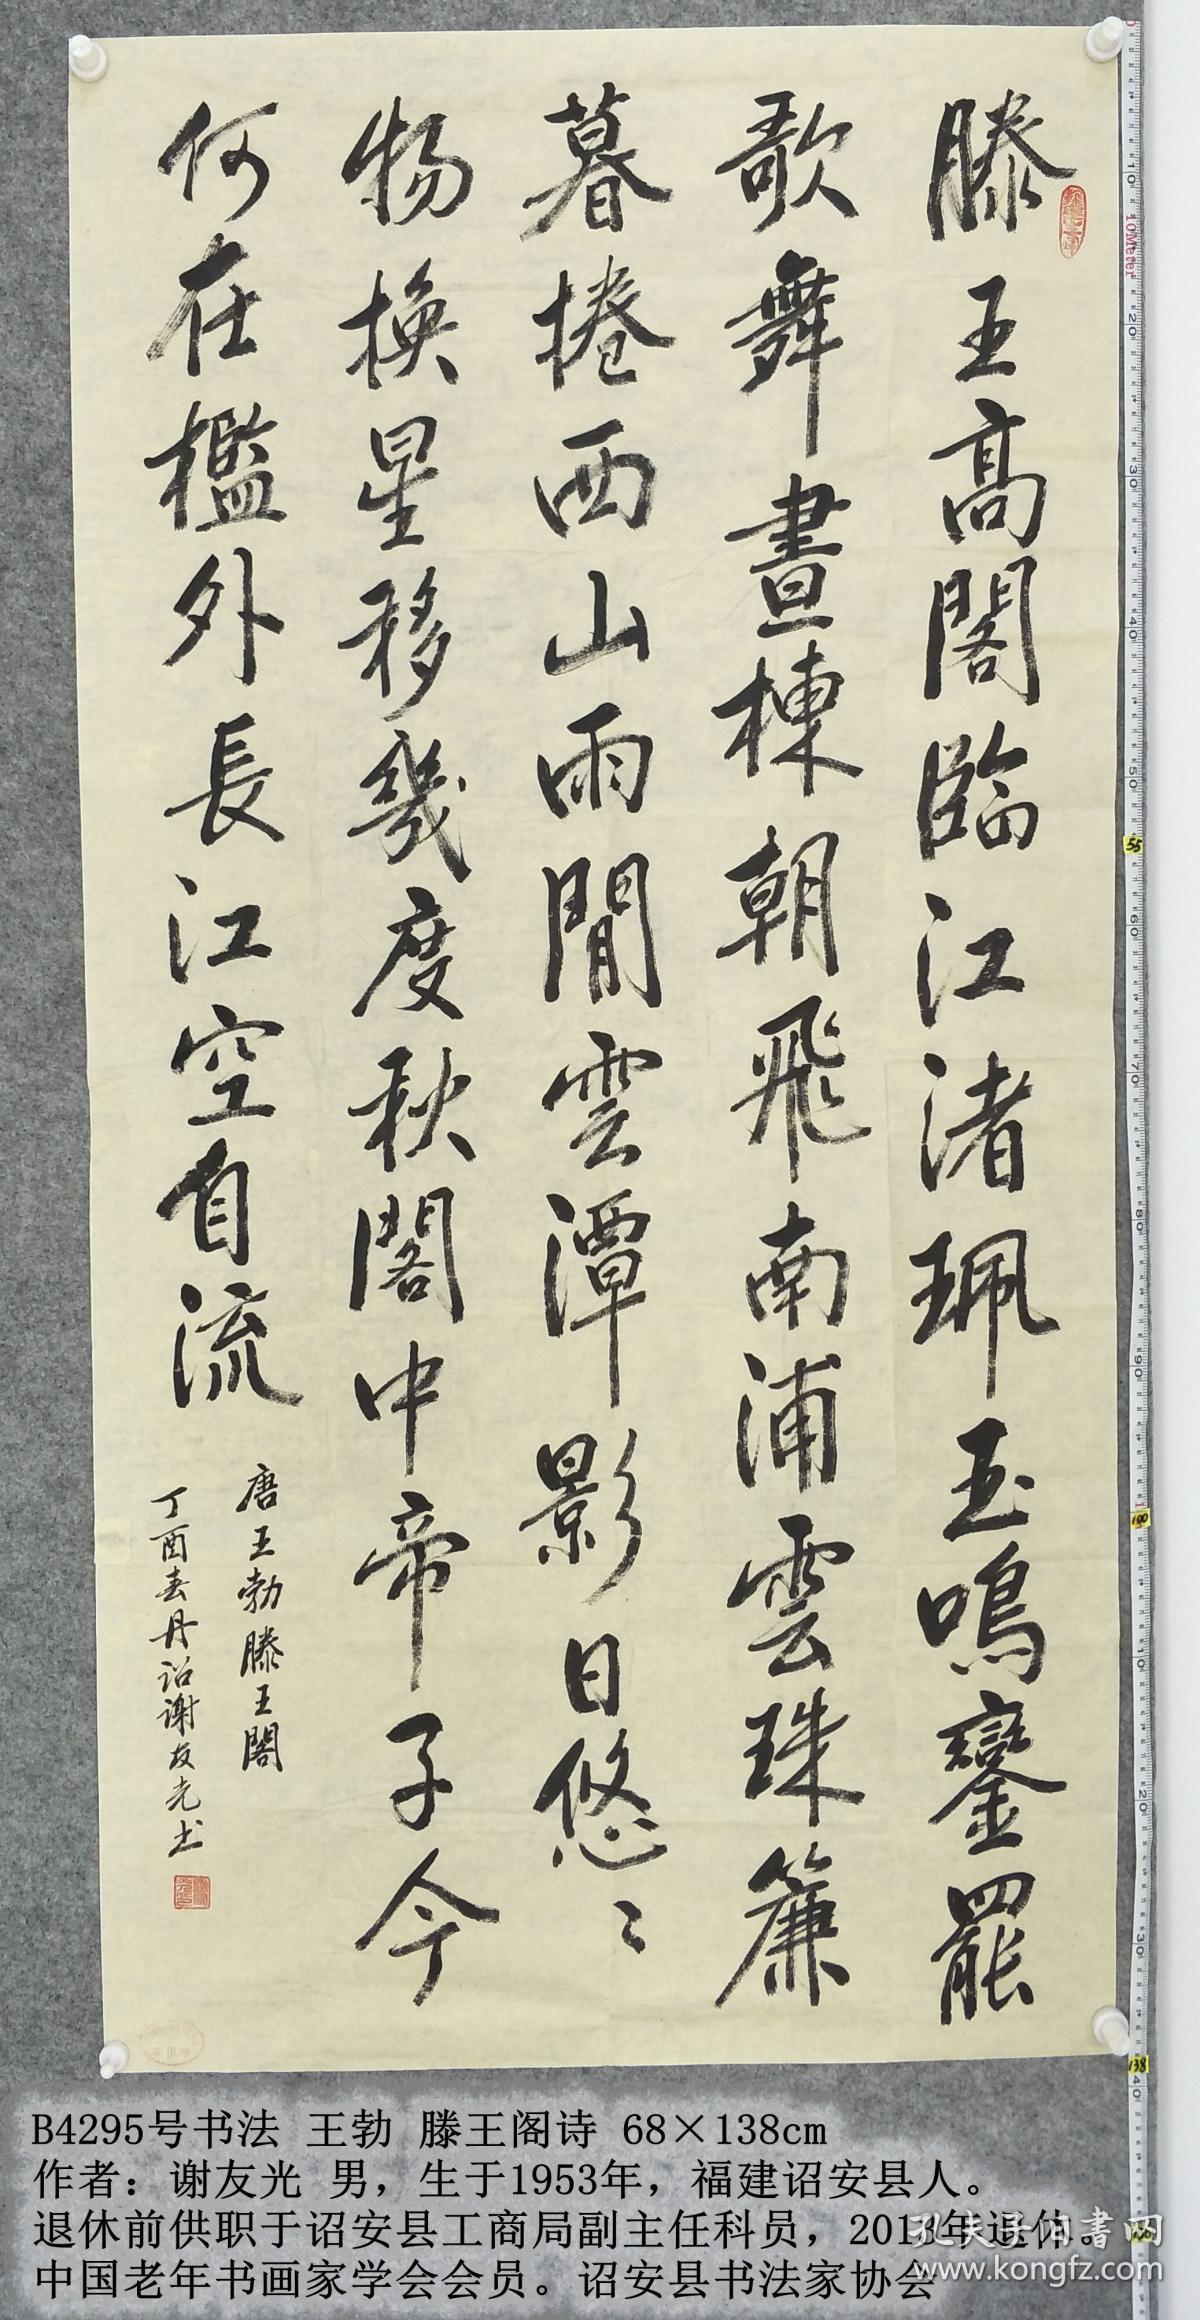 滕王高閣臨江渚珮玉鳴鑾罷
歌舞畫棟朝飛南浦雲珠簾
暮捲西山雨閒雲潭影日悠〻
物換星移幾度秋閣中帝子今
何在檻外長江空自流
唐王勃滕王閣
丁酉春丹詔謝友光书
10Meter
10
20
30
40
50
55
60
70
80
90
100
10
20
30
138
40
B4295号书法 王勃 滕王阁诗 68×138cm
作者：谢友光 男，生于1953年，福建诏安县人。
退休前供职于诏安县工商局副主任科员，2013年退休。
中国老年书画家学会会员。诏安县书法家协会
孔夫子旧书网
www.kongfz.com